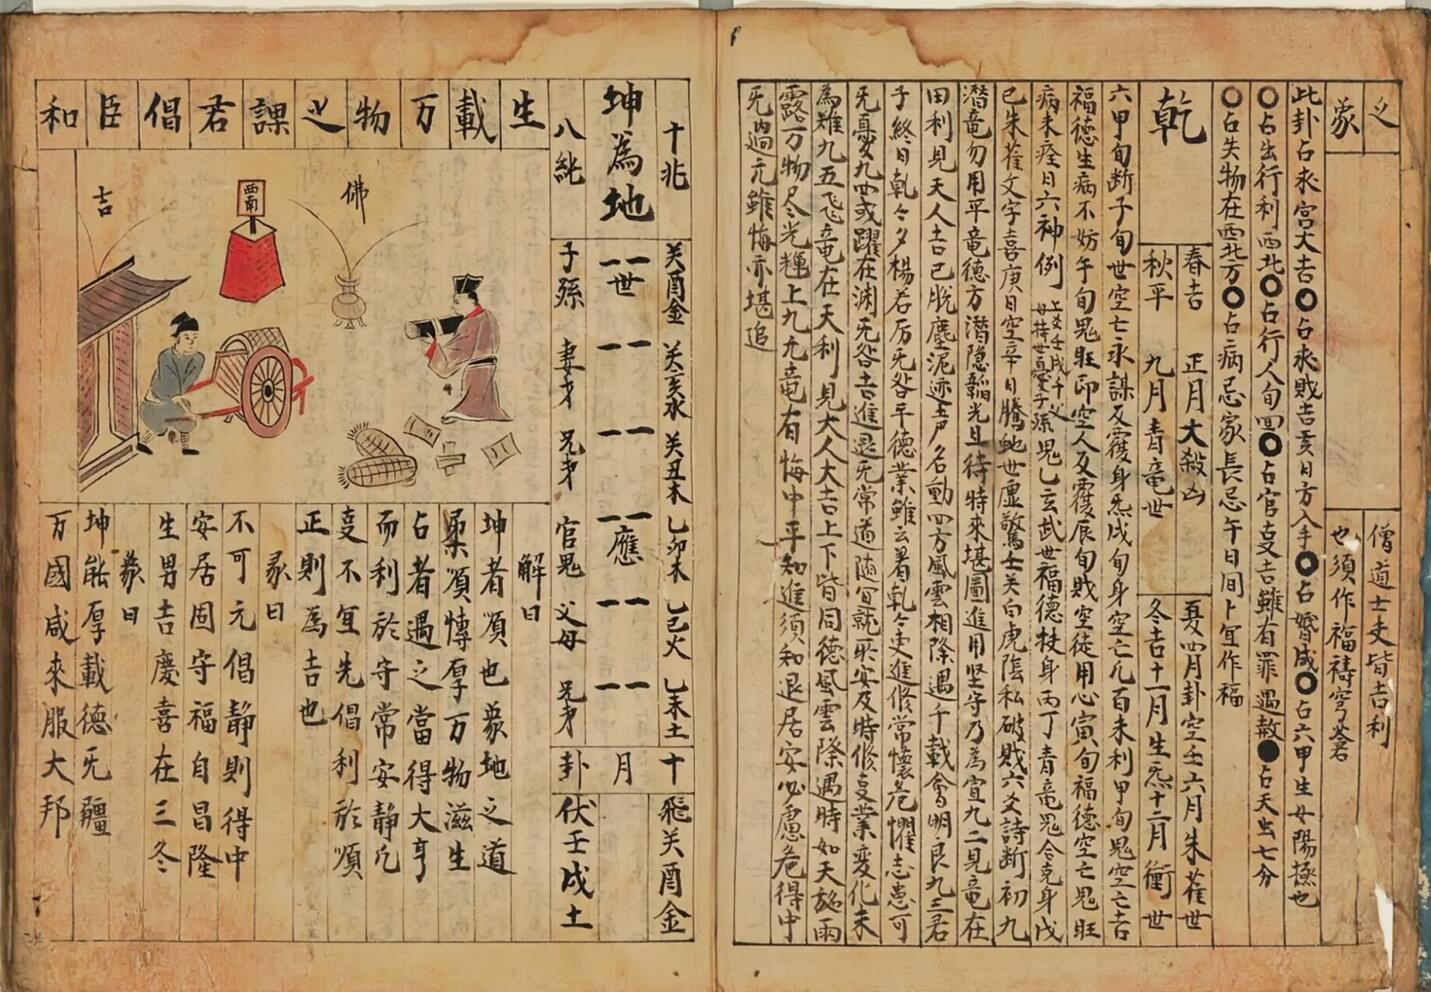 之
象
僧道士吏皆吉利
也須作福禱穹蒼
此卦占求宮大吉○占求財吉亥日方入手○占婚成○占六甲生女陽極也
○占出行利西北○占行人旬回○占官吏吉雖有罪過赦●占天出七分
○占失物在西北方○占病忌家長忌午日間卜宜作福
乾
春吉 正月大殺凶
秋平 九月青竜世
夏四月卦空壬六月朱雀世
冬吉十一月生炁十二月衝世
六甲旬断子旬世空亡永謀反覆身炁戌旬身空亡凡百未利甲旬鬼空亡吉
福德生病不妨午旬鬼旺印空人反覆辰旬財空徒用心寅旬福德空亡鬼旺
病未痊日六神例
鬼乙玄武世福德杖身丙丁青竜鬼合克身戊
己朱雀文字喜庚日空辛日騰虵世虛驚士关白虎陰私破財六爻詩断初九
潛竜勿用平竜德方潛隐韜光且待時來堪圖進用坚守乃為宜九二見竜在
田利見天人吉已脱塵泥迹声名動四方風雲相際遇千載會明良九三君
子終日乾々夕楊若厉无咎平德業雖云着乾々吏進修常懷危懼志恚可
无憂九四或躍在渊无咎吉進退无常道隨宜就所安及時修吏業変化未
為难九五飞竜在天利見大人大吉上下皆同德風雲際遇時如天施雨
露万物尽光輝上九亢竜有悔中平知進須知退居安必慮危得中
无過亢雖悔亦堪追
十兆
关酉金 关亥水 关丑木 乙卯木 乙巳火 乙未土
十
飛关酉金
坤為地
世
應
月
八純
子孫 妻才 兄才 官鬼 父母 兄才
卦
伏壬戌土
生載万物之課君倡臣和
佛
西南
吉
解曰
坤者順也象地之道
稟順慱厚万物滋生
占者遇之當得大亨
而利於守常安静凡
叓不宜先倡利於順
正則為吉也
彖曰
不可元倡静則得中
安居固守福自昌隆
生男吉慶喜在三冬
象曰
坤能厚載德无疆
万國咸來服大邦